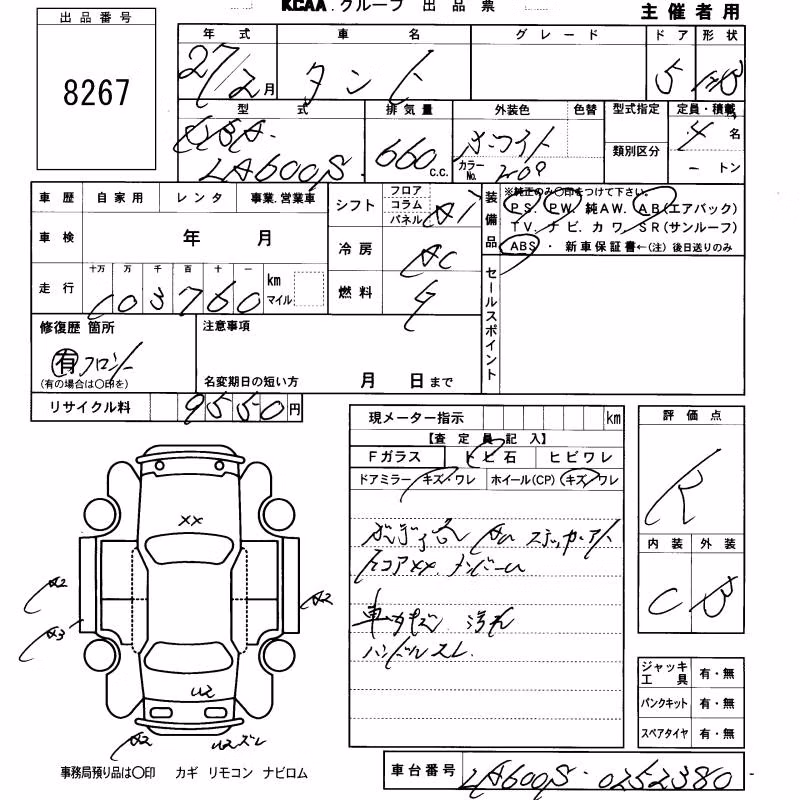 KCAA.グループ 出品票
主催者用
出品番号
8267
年式 車名 グレード ドア 形状
27/2月 タント 5
型式 排気量 外装色 色替 型式指定 定員・積載
LA600S 660 c.c. ホワイト 4名
カラーNo. 類別区分 －トン
車歴 自家用 レンタ 事業.営業車
シフト フロア コラム パネル AT
装備品 ※純正のみ○印をつけて下さい。
PS. PW. 純AW. AB(エアバック)
TV. ナビ. カワ. SR(サンルーフ)
ABS ・ 新車保証書←(注) 後日送りのみ
車検 年 月
冷房 AC
走行 十万 万 千 百 十 一
103760 km マイル
燃料 G
セールスポイント
修復歴 箇所
有 フロント
(有の場合は○印を)
注意事項
名変期日の短い方 月 日まで
リサイクル料 9550円
現メーター指示 km
【査定員記入】
Fガラス トビ石 ヒビワレ
ドアミラー キズ・ワレ ホイール(CP) キズ・ワレ
評価点
R
内装 外装
C B
XX
A2
A3
A2
U2
A2
U2ズレ
コアXX
汚れ
ハンドルスレ
ジャッキ工具 有・無
パンクキット 有・無
スペアタイヤ 有・無
事務局預り品は○印 カギ リモコン ナビロム
車台番号 LA600S-0252380